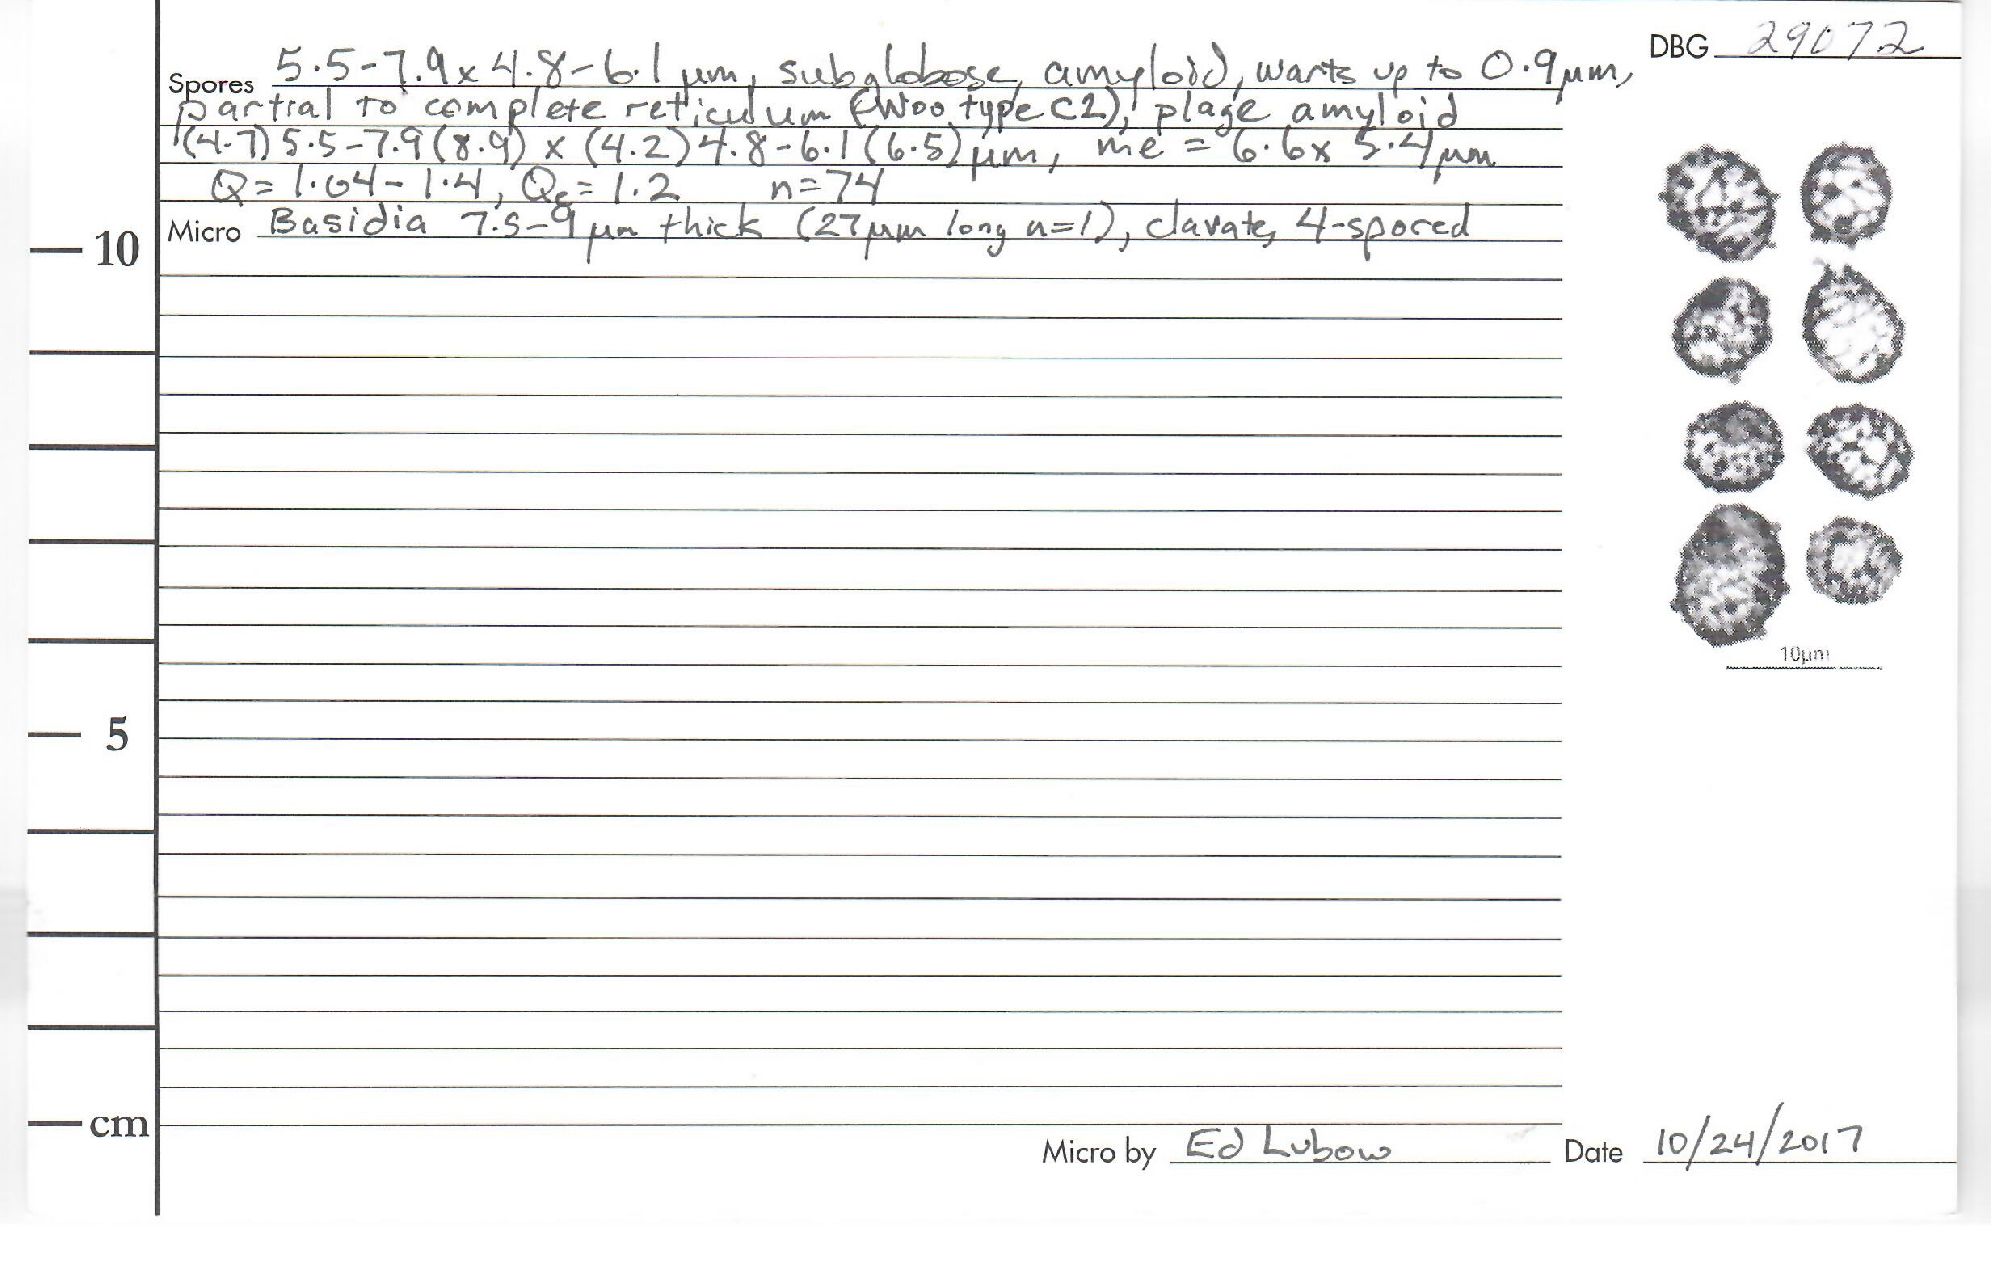 DBG 29072
Spores 5.5-7.9 x 4.8-6.1 µm, subglobose, amyloid, warts up to 0.9µm,
partial to complete reticulum (Woo type C2), plage amyloid
(4.7) 5.5-7.9 (8.9) x (4.2) 4.8-6.1 (6.5) µm, me = 6.6 x 5.4 µm
Q = 1.04 - 1.4, Qe = 1.2 n=74
Micro Basidia 7.5-9 µm thick (27µm long n=1), clavate, 4-spored
10
5
cm
10µm
Micro by Ed Lubow Date 10/24/2017